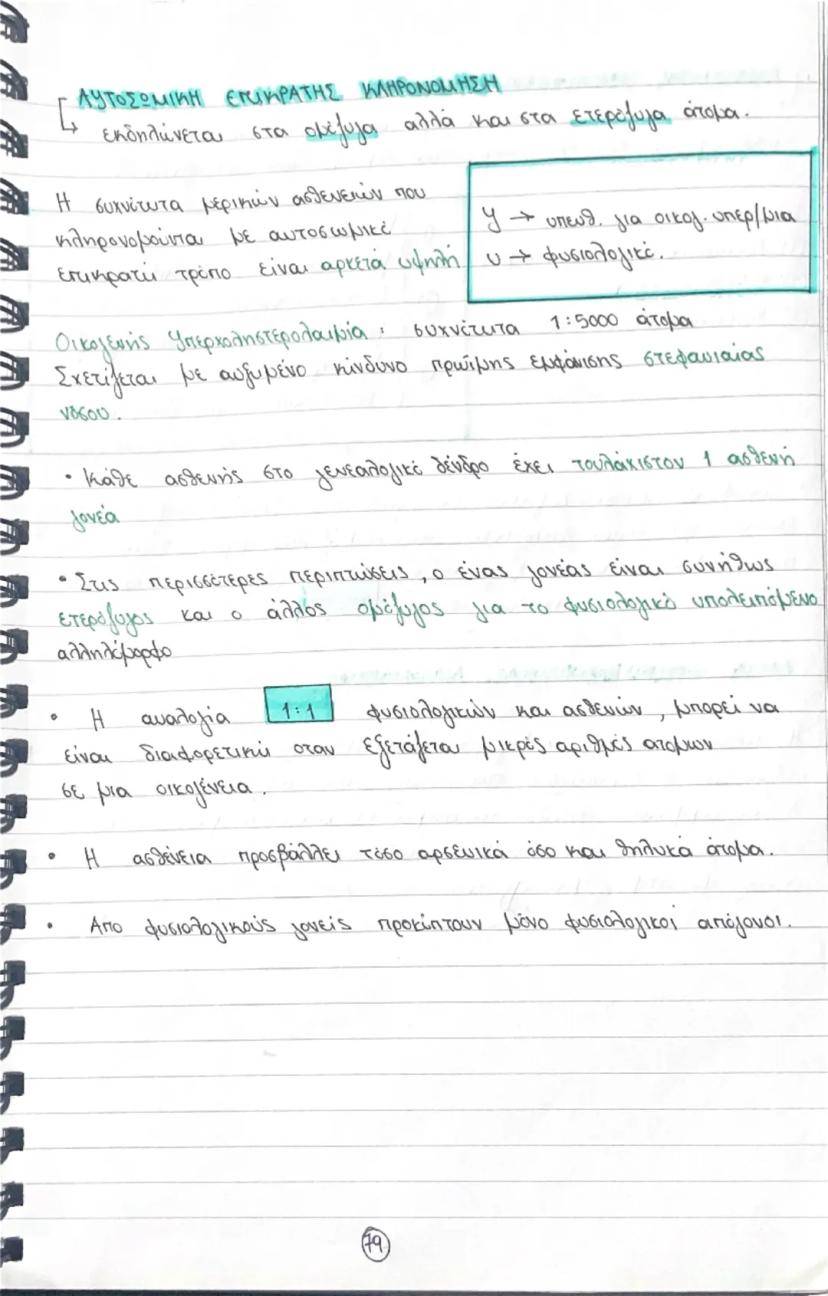 ΑΥΤΟΣΩΜΙΚΗ ΕΠΙΚΡΑΤΗΣ ΚΛΗΡΟΝΟΜΗΣΗ
↳ εκδηλώνεται στα ομόζυγα αλλά και στα ετερόζυγα άτομα.
Η συχνότητα μερικών ασθενειών που
κληρονομούνται με αυτοσωμικό
επικρατή τρόπο είναι αρκετά υψηλή
Υ → υπευθ. για οικογ. υπερ/μια
υ → φυσιολογικό.
Οικογενής Υπερχοληστερολαιμία : συχνότητα 1:5000 άτομα
Σχετίζεται με αυξημένο κίνδυνο πρώιμης εμφάνισης στεφανιαίας
νόσου.
• Κάθε ασθενής στο γενεαλογικό δένδρο έχει τουλάχιστον 1 ασθενή
γονέα
• Στις περισσότερες περιπτώσεις, ο ένας γονέας είναι συνήθως
ετερόζυγος και ο άλλος ομόζυγος για το φυσιολογικό υπολειπόμενο
αλληλόμορφο
• Η αναλογία 1:1 φυσιολογικών και ασθενών, μπορεί να
είναι διαφορετική όταν εξετάζεται μικρός αριθμός ατόμων
σε μια οικογένεια.
• Η ασθένεια προσβάλλει τόσο αρσενικά όσο και θηλυκά άτομα.
• Απο φυσιολογικούς γονείς προκύπτουν μόνο φυσιολογικοί απόγονοι.
79